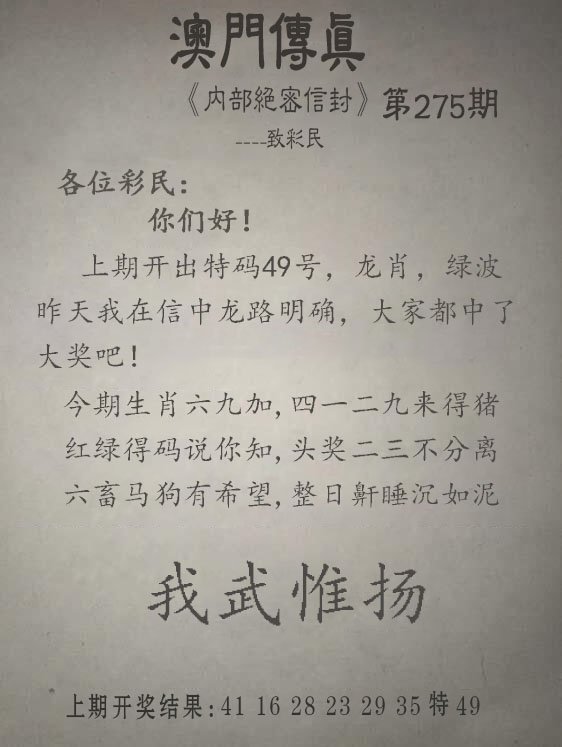 澳門傳眞
《内部絕密信封》第275期
----致彩民
各位彩民：
你们好！
上期开出特码49号，龙肖，绿波
昨天我在信中龙路明确，大家都中了
大奖吧！
今期生肖六九加,四一二九来得猪
红绿得码说你知,头奖二三不分离
六畜马狗有希望,整日鼾睡沉如泥
我武惟扬
上期开奖结果:41 16 28 23 29 35特49